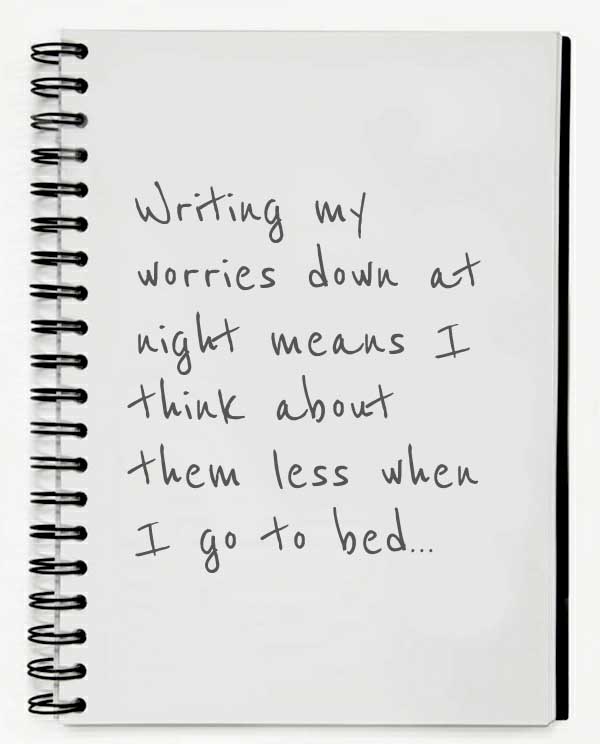 Writing my
worries down at
night means I
think about
them less when
I go to bed...